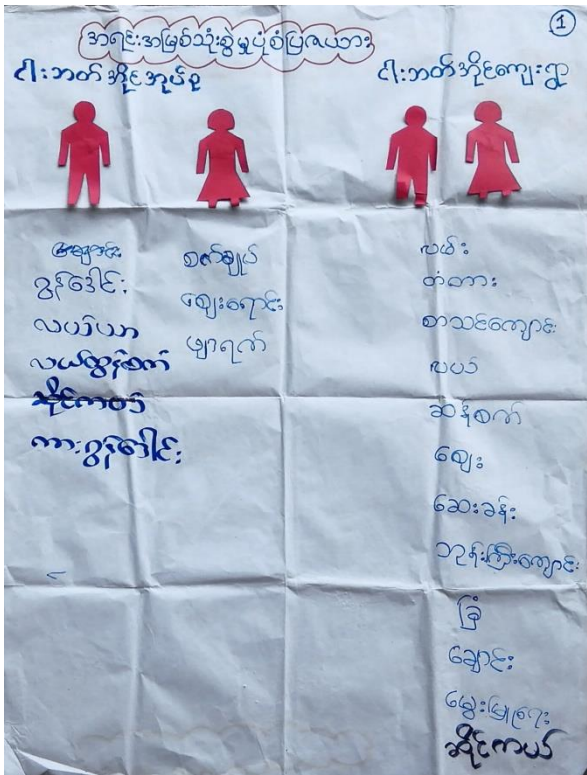 ①
အရင်းအမြစ်သုံးစွဲမှုပုံစံပြဇယား
ငါးဘတ်အိုင်အုပ်စု
ငွန်ဒေါင်း
လယ်ယာ
လယ်ထွန်စက်
ဆိုင်ကယ်
ကားငွန်ဒေါင်း
စက်ချုပ်
ဈေးရောင်း
ဖျာရက်
ငါးဘတ်အိုင်ကျေးရွာ
လမ်း
တံတား
စာသင်ကျောင်း
လယ်
ဆန်စက်
ဈေး
ဆေးခန်း
ဘုန်းကြီးကျောင်း
ခြံ
ချောင်း
မွေးမြူရေး
ဆိုင်ကယ်